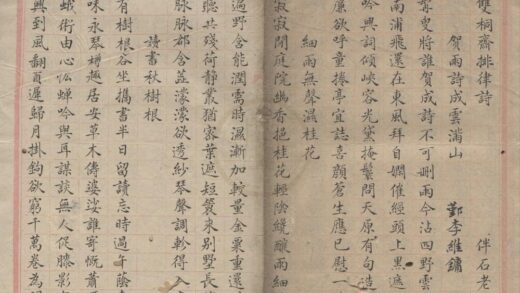 雙桐齋排律詩
伴石老
賀雨詩成雲滿山
鄞李維鏞
叟將誰賀成詩不可刪雨今沾四野雲
南浦飛還在東風拜自嫻催經頭上黑遮
吟興詞傾峽容光黛掩鬟問天原有句造
廉欲呼童捲亭宜誌喜顏蒼生應已慰一
細雨無聲濕桂花
寂寂閒庭院幽香挹桂花輕陰纔釀雨細
過野含能潤需時濕漸加較量金粟重還
聽共殘荷靜叢猶家葉遮短簑來別墅長
脉脉都含蕊濛濛欲透紗琴聲調軫得入
讀書秋樹根
有樹根谷坐攜書半日留讀忘時過午蔭
味永琴趣居安草木儔婆娑誰寄慨蕭
蛾術由心蟬吟與耳謀談無人促膝影
興到風翻頁遲歸月掛鉤欲窮千萬卷為